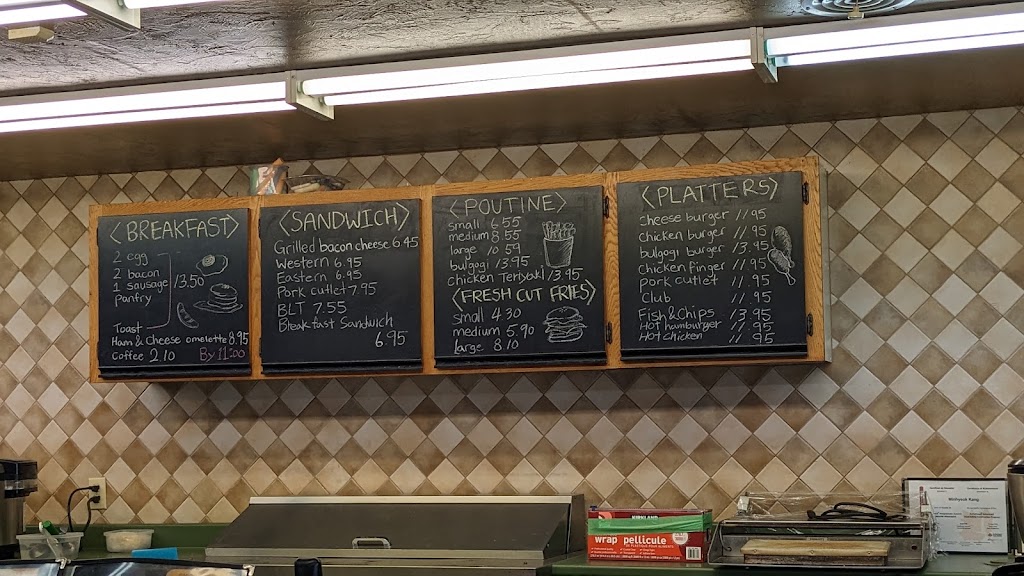 < BREAKFAST>
2 egg
2 bacon
1 sausage
Panfry
13.50
Toast
Ham & cheese omelette 8.95
Coffee 2.10 By 11:00
<SANDWICH>
Grilled bacon cheese 6.45
Western 6.95
Eastern 6.95
Pork cutlet 7.95
BLT 7.55
Breakfast Sandwich
6.95
<POUTINE>
small 6.55
medium 8.55
large 10.59
bulgogi 13.95
chicken Teriyaki 13.95
<FRESH CUT FRIES>
small 4.30
medium 5.90
large 8.10
<PLATTERS>
cheese burger 11.95
chicken burger 11.95
bulgogi burger 13.95
Chicken Finger 11.95
pork cutlet 11.95
Club 11.95
Fish & Chips 13.95
HOT hamburger 11.95
HOT chicken 11.95
KIRKLAND
wrap pellicule